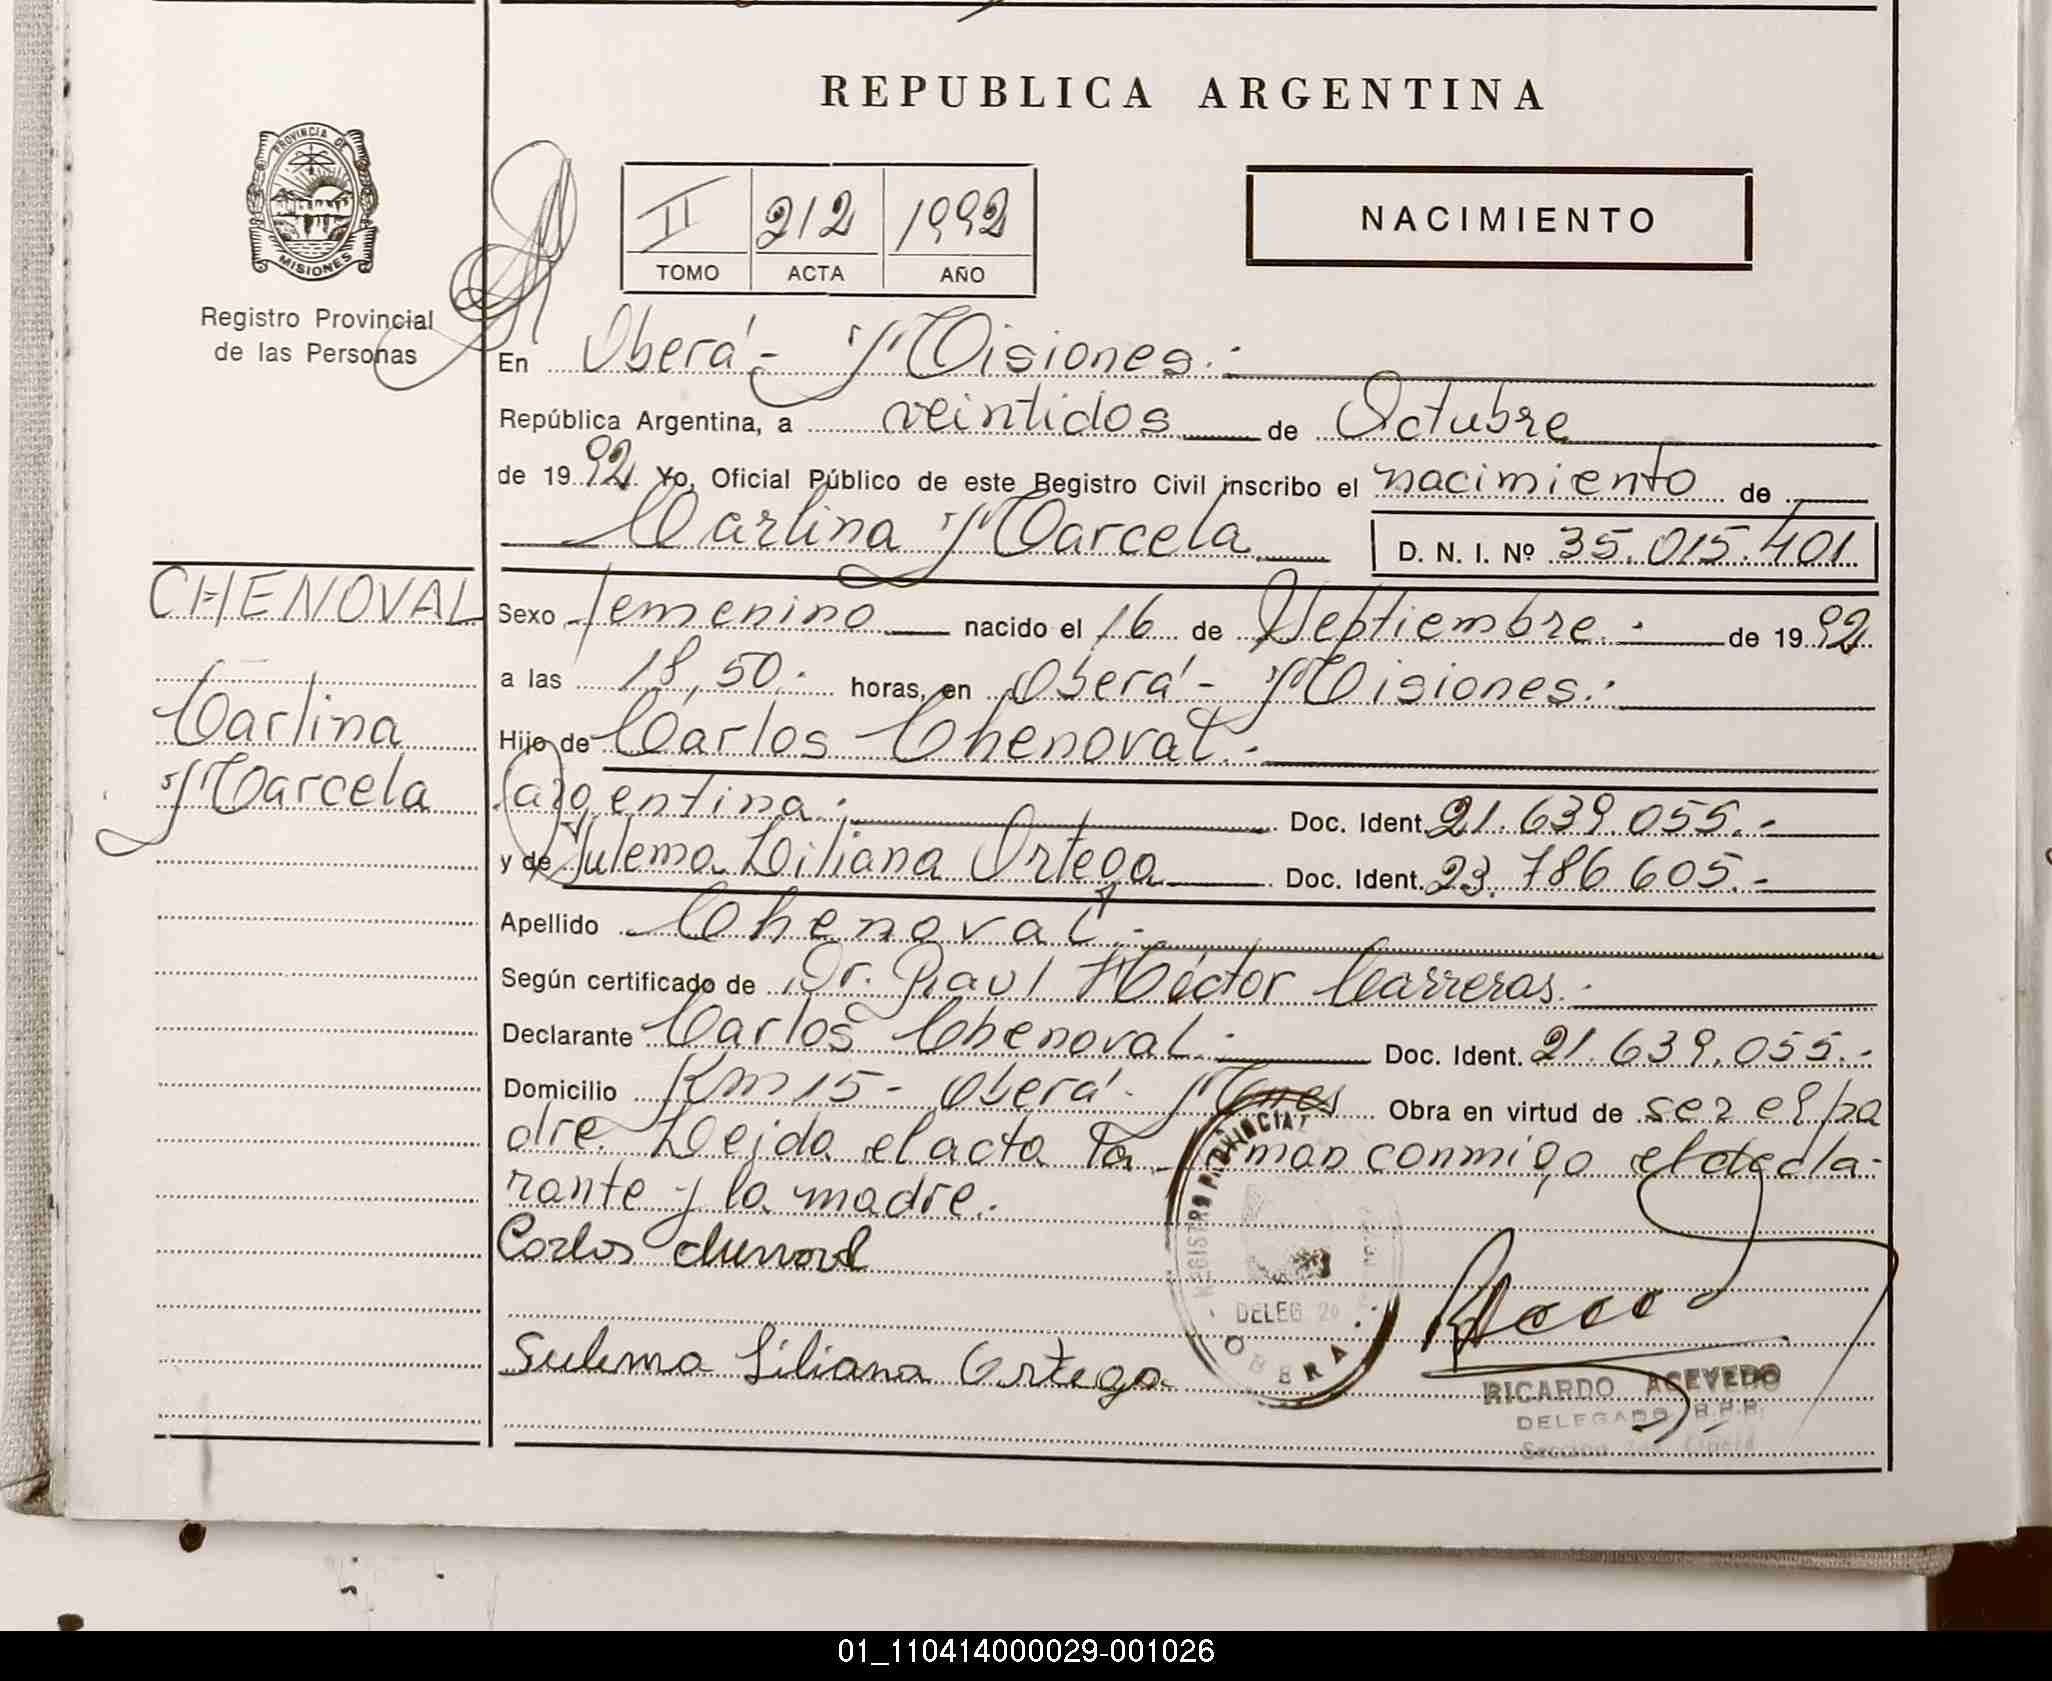 REPUBLICA ARGENTINA
PROVINCIA DE
MISIONES
Registro Provincial
de las Personas
II 212 1992
TOMO ACTA AÑO
NACIMIENTO
En Oberá - Misiones.-
República Argentina, a veintidos de Octubre
de 1992 Yo, Oficial Público de este Registro Civil inscribo el nacimiento de
Carlina Marcela D. N. I. Nº 35.015.401
CHENOVAL
Carlina
Marcela
Sexo femenino nacido el 16 de Septiembre.- de 1992
a las 18,50.- horas, en Oberá - Misiones.-
Hijo de Carlos Chenoval.-
argentina.- Doc. Ident. 21.639.055.-
y de Sulema Liliana Ortega Doc. Ident. 23.786.605.-
Apellido Chenoval.-
Según certificado de Dr. Raul Héctor Carreras.-
Declarante Carlos Chenoval.- Doc. Ident. 21.639.055.-
Domicilio Km 15 - Oberá - Mnes Obra en virtud de ser el pa
dre. Leida el acta la firman conmigo el decla-
rante y la madre.-
Carlos Chenoval
REGISTRO PROVINCIAL
DELEG
OBERA
Sulema Liliana Ortega
RICARDO ACEVEDO
DELEGADO R.P.P.
Sección Oberá
01_110414000029-001026